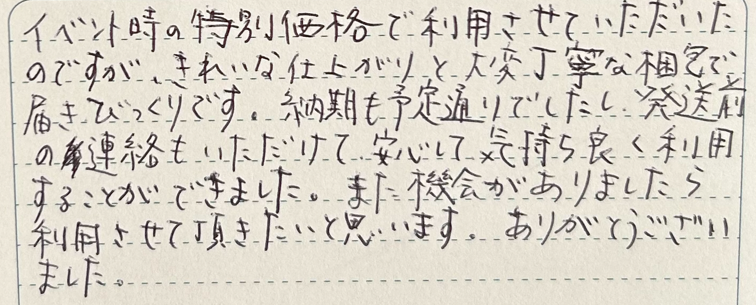 イベント時の特別価格で利用させていただいた
のですが、きれいな仕上がりと大変丁寧な梱包で
届きびっくりです。納期も予定通りでしたし、発送前
の連絡もいただけて、安心して気持ち良く利用
することができました。また機会がありましたら
利用させて頂きたいと思います。ありがとうござい
ました。